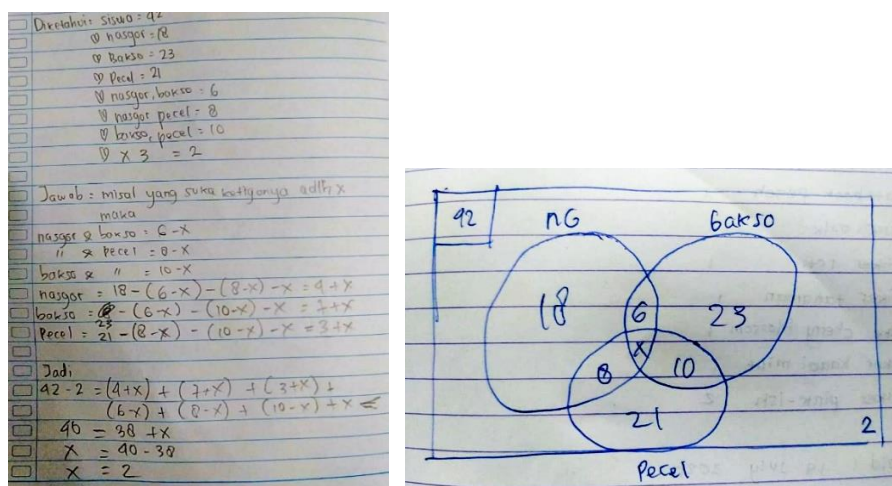 Diketahui: siswa = 42
♡ nasgor = 18
♡ Bakso = 23
♡ Pecel = 21
♡ nasgor, bakso = 6
♡ nasgor pecel = 8
♡ bakso, pecel = 10
♡ x 3 = 2
Jawab = misal yang suka ketiganya adlh x
maka
nasgor & bakso = 6-x
" & pecel = 8-x
bakso & " = 10-x
nasgor = 18 - (6-x) - (8-x) - x = 4+x
bakso = 23 - (6-x) - (10-x) - x = 7+x
Pecel = 21 - (8-x) - (10-x) - x = 3+x
Jadi
42-2 = (4+x) + (7+x) + (3+x) +
(6-x) + (8-x) + (10-x) + x
40 = 38 + x
x = 40 - 38
x = 2
42
NG
bakso
18
6
23
x
8
10
21
2
Pecel